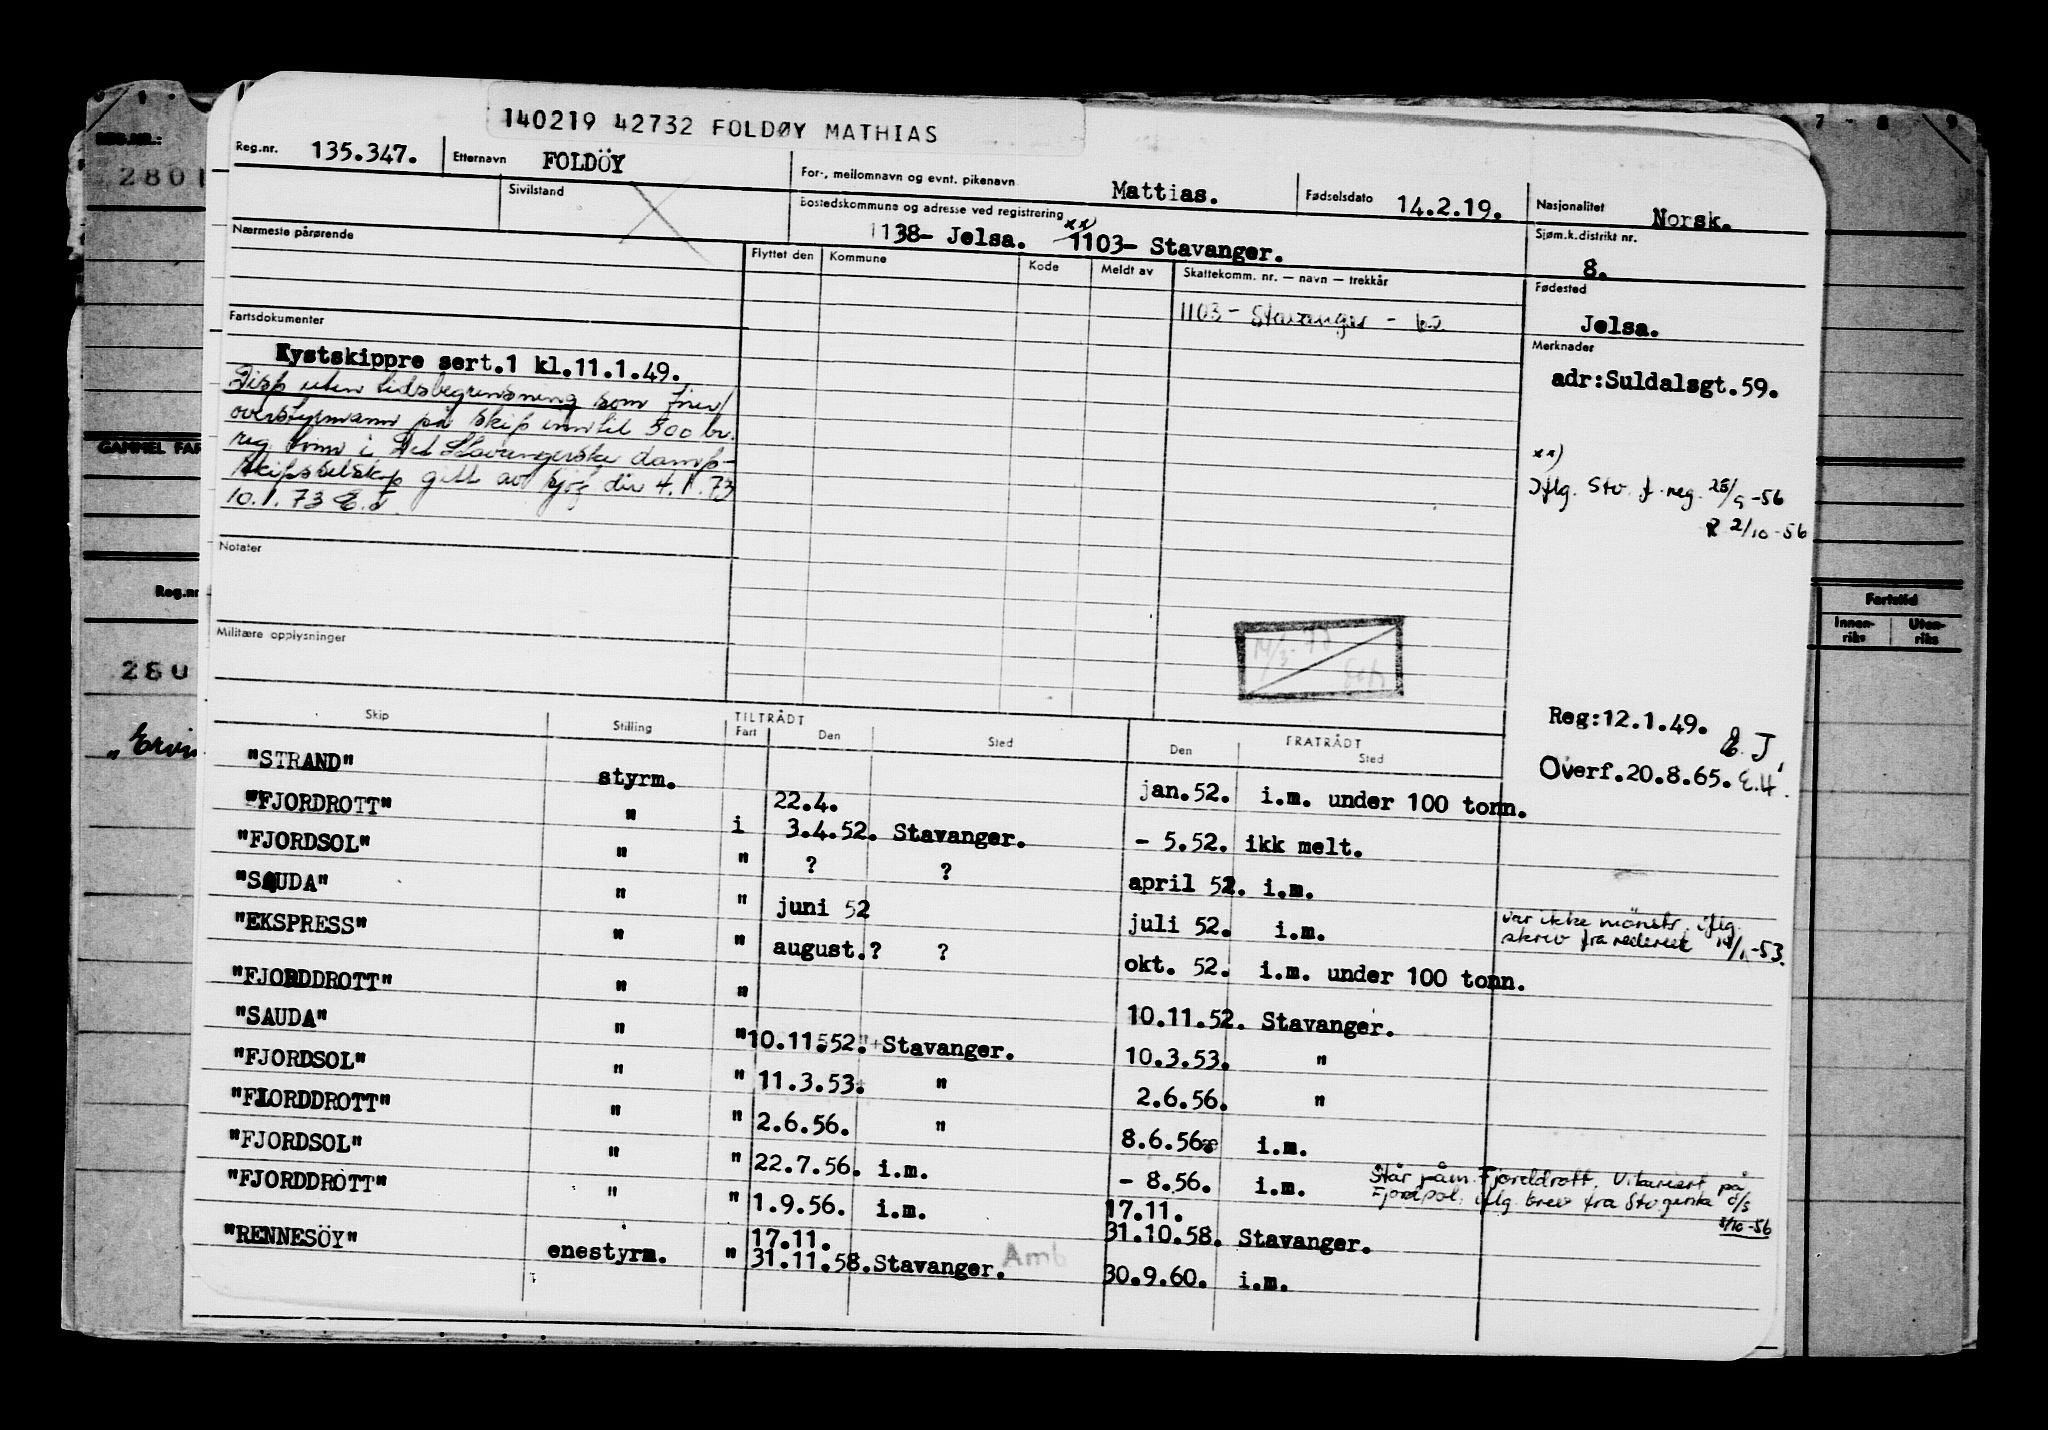 140219 42732 FOLDØY MATHIAS
Reg.nr. 135.347. Etternavn FOLDÖY For-, mellomnavn og evnt. pikenavn Mattias. Fødselsdato 14.2.19. Nasjonalitet Norsk.
Sivilstand Bostedskommune og adresse ved registrering 1138- Jelsa. xx) 1103- Stavanger. Sjøm.k.distrikt nr. 8.
Nærmeste pårørende Flyttet den Kommune Kode Meldt av Skattekomm. nr. — navn — trekkår Fødested
1103 - Stavanger - Jelsa.
Fartsdokumenter Merknader
Kystskippre sert.1 kl.11.1.49. adr:Suldalsgt.59.
Disp uten tidsbegrensning som
overstyrmann på skip inntil 500 br.
reg tonn i Det Stavangerske damp-
skipsselskap gitt av sjøf dir 4.1.73
10.1.73 E.J.
xx)
Iflg. Stv. f.reg. 28/9-56
2/10-56
Notater
Militære opplysninger
Reg:12.1.49. E.J.
Overf.20.8.65. E.H.
Skip Stilling TILTRÅDT Fart Den Sted FRATRÅDT Den Sted
"STRAND" styrm. jan.52. i.m. under 100 tonn.
"FJORDROTT" " i 22.4. 3.4.52. Stavanger. - 5.52. ikk melt.
"FJORDSOL" " " ? ? april 52. i.m.
"SAUDA" " " juni 52 juli 52. i.m. var ikke mönstr. iflg.
skriv fra rederiet /1-53.
"EKSPRESS" " " august.? ? okt. 52. i.m. under 100 tonn.
"FJORDDROTT" " " 10.11.52. Stavanger.
"SAUDA" " " 10.11.52. Stavanger. 10.3.53. "
"FJORDSOL" " " 11.3.53. " 2.6.56. "
"FJORDDROTT" " " 2.6.56. " 8.6.56. i.m.
"FJORDSOL" " " 22.7.56. i.m. - 8.56. i.m. Står påm. Fjorddrott. Vikariert på
Fjordsol, iflg. brev fra Stvgerske D/S
5/10-56
"FJORDDROTT" " " 1.9.56. i.m. 17.11. 31.10.58. Stavanger.
"RENNESÖY" enestyrm. " 17.11. 31.11.58. Stavanger. Amb 30.9.60. i.m.
REG.NR.:
2801
GAMMEL FAR
Reg.nr
280
7 - 8 9
Fartstid
Innen-riks Uten-riks